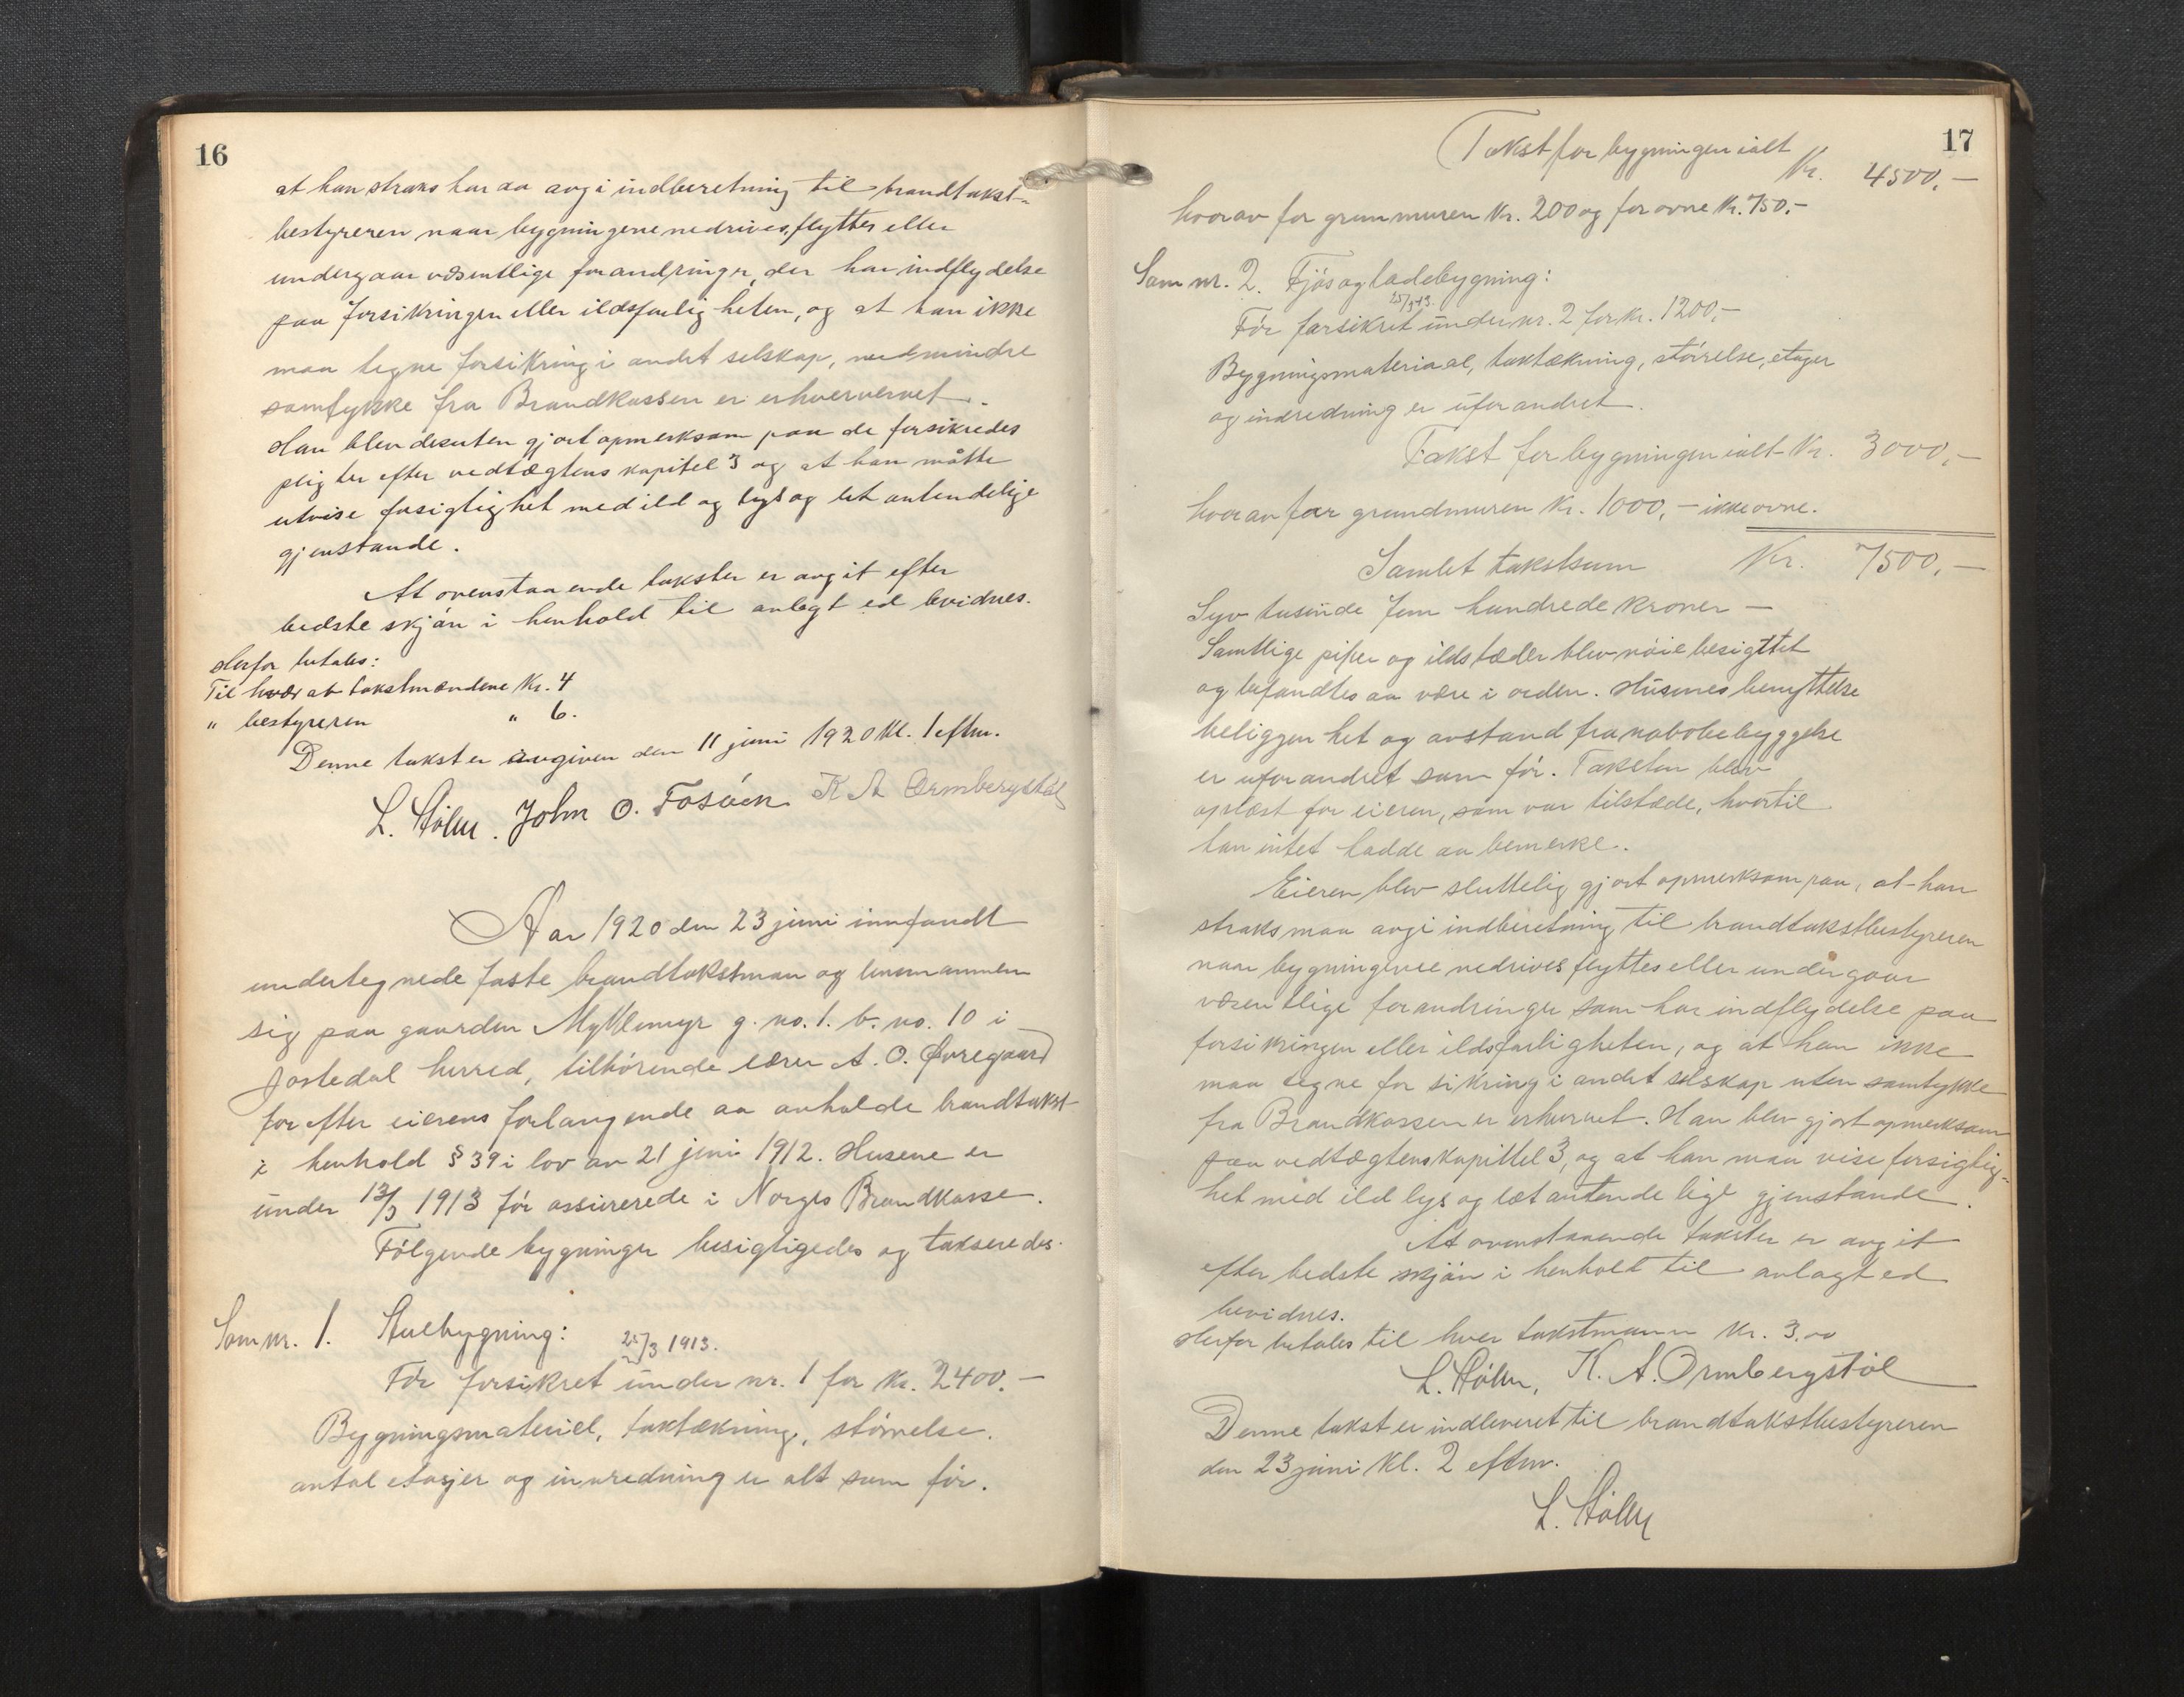 16
at han straks har aa avgi indberetning til brandtakst-
bestyreren naar bygningene nedrives, flyttes eller
undergaar væsentlige forandringer, der har indflydelse
paa forsikringen eller ildsfarligheten, og at han ikke
maa tegne forsikring i andet selskap, medmindre
samtykke fra Brandkassen er erhvervet.
Han blev desuten gjort opmerksom paa de forsikredes
pligter efter vedtægtens kapitel 3 og at han måtte
utvise forsigtighet med ild og lys og let antendelige
gjenstande.
At ovenstaaende takster er avgit efter
bedste skjøn i henhold til avlagt ed bevidnes.
Herfor betales:
Til hver at takstmændene Kr. 4
" bestyreren " 6.
Denne takst er avgiven den 11 juni 1920 kl. 1 eftm.
L. Stölen. John O. Fosøen K A Ormbergstøl
Aar 1920 den 23 juni innfandt
undertegnede faste brandtakstman og lensmannen
sig paa gaarden Myklemyr g. no. 1. b. no. 10 i
Jostedal herred, tilhörende lærer A. O. Øvregaard
for efter eierens forlangende aa avholde brandtakst
i henhold § 39 i lov av 21 juni 1912. Husene er
under 13/3 1913 før assurerede i Norges Brandkasse.
Følgende bygninger besigtigedes og takseredes.
Som nr. 1. Stuebygning:
25/3 1913.
Før forsikret under nr. 1 for Kr. 2400.-
Bygningsmateriel, taktækning, størrelse.
antal etasjer og innredning er alt som før.
17
Takst for bygningen ialt
Kr. 4500,-
hvorav for grunmuren Kr. 200 og for ovne Kr. 750.-
Som nr. 2. Fjøs og ladebygning:
25/3 13.
Før forsikret under nr. 2 for kr. 1200,-
Bygningsmateriael, taktækning, størrelse, etager
og indredning er uforandret.
Takst for bygningen ialt Kr. 3000,-
hvorav for grundmuren Kr. 1000,- ikke ovne.
Samlet takstsum Kr. 7500,-
Syv tusinde fem hundrede kroner -
Samtlige piper og ildstæder blev nøie besigttet
og befandtes aa være i orden. Husenes benyttelse
beliggenhet og avstand fra nabobebyggelse
er uforandret som før. Taksten blev
oplæst for eieren, som var tilstæde, hvortil
han intet hadde aa bemerke.
Eieren blev sluttelig gjort opmerksom paa, at han
straks maa avgi indberetning til brandtakstbestyreren
naar bygningene nedrives flyttes eller undergaar
væsentlige forandringer som har indflydelse paa
forsikringen eller ildsfarligheten, og at han ikke
maa tegne forsikring i andet selskap uten samtykke
fra Brandkassen er erhvervet. Han blev gjort opmerksom
paa vedtægtens kapittel 3, og at han maa vise forsigtig-
het med ild lys og let antendelige gjenstande.
At ovenstaaende takster er avgit
efter bedste skjøn i henhold til avlagt ed
bevidnes.
Herfor betales til hver takstmann Kr. 3.00
L. Stölen, K. A. Ormbergstøl
Denne takst er indleveret til brandtakstbestyreren
den 23 juni kl. 2 eftm.
L. Stölen